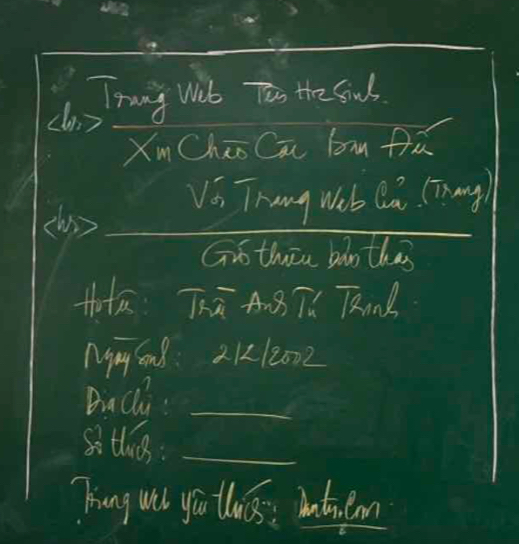 Trang Web Tên Học Sinh
<hr>
Xin Chào Các Bạn Đến
Với Trang Web Của (Trang)
<hr>
Giới thiệu bản thân
Họ tên: Trần Anh Tú Trinh
Ngày sinh: 2/2/2002
Địa chỉ:
Sở thích:
Trang web yêu thích: